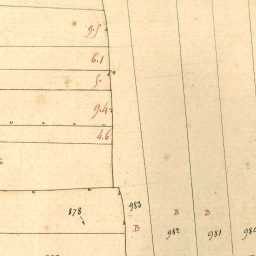 9.5
6.1
5.
9.4
4.6
878
983
B
B
B
982
981